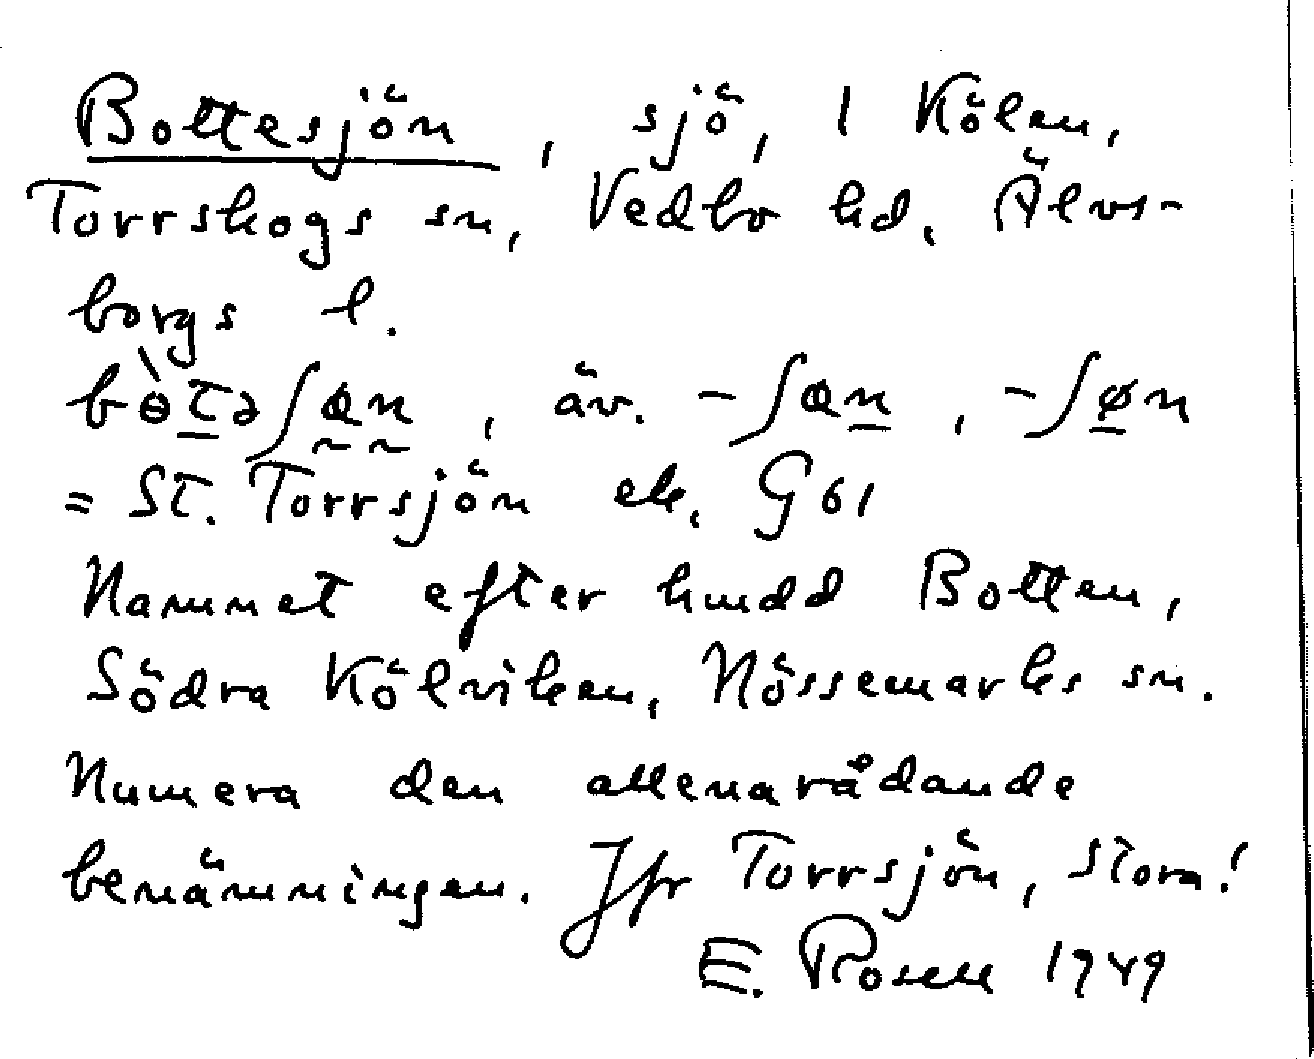 Bottesjön, sjö, 1 Kölen,
Torrskogs sn, Vedbo hd, Älvs-
borgs l.
bɵ̀tə∫ɑn, äv. -∫ɑn, -∫øn
= St. Torrsjön ek. G61
Namnet efter hmdd Botten,
Södra Kölviken, Nössemarks sn.
Numera den allenarådande
benämningen. Jfr Torrsjön, Stora!
E. Rosell 1949